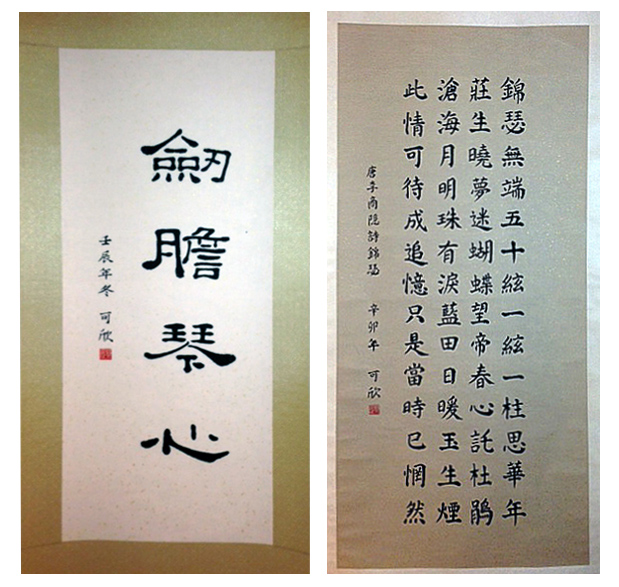 劒膽琴心
壬辰年冬 可欣
錦瑟無端五十絃一絃一柱思華年
莊生曉夢迷蝴蝶望帝春心託杜鵑
滄海月明珠有淚藍田日暖玉生煙
此情可待成追憶只是當時已惘然
唐李商隐詩錦瑟 辛卯年 可欣